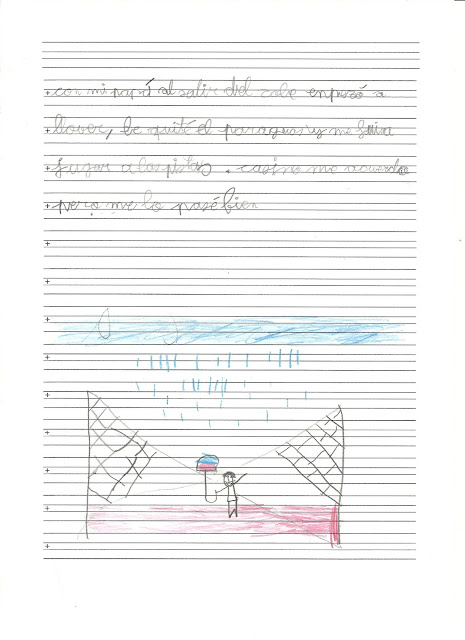 con mi papá al salir del cole enpezó a
llover, le quité el paraguas y me fui a
jugar a las pistas. casi no me acuerdo
pero me lo pasé bien